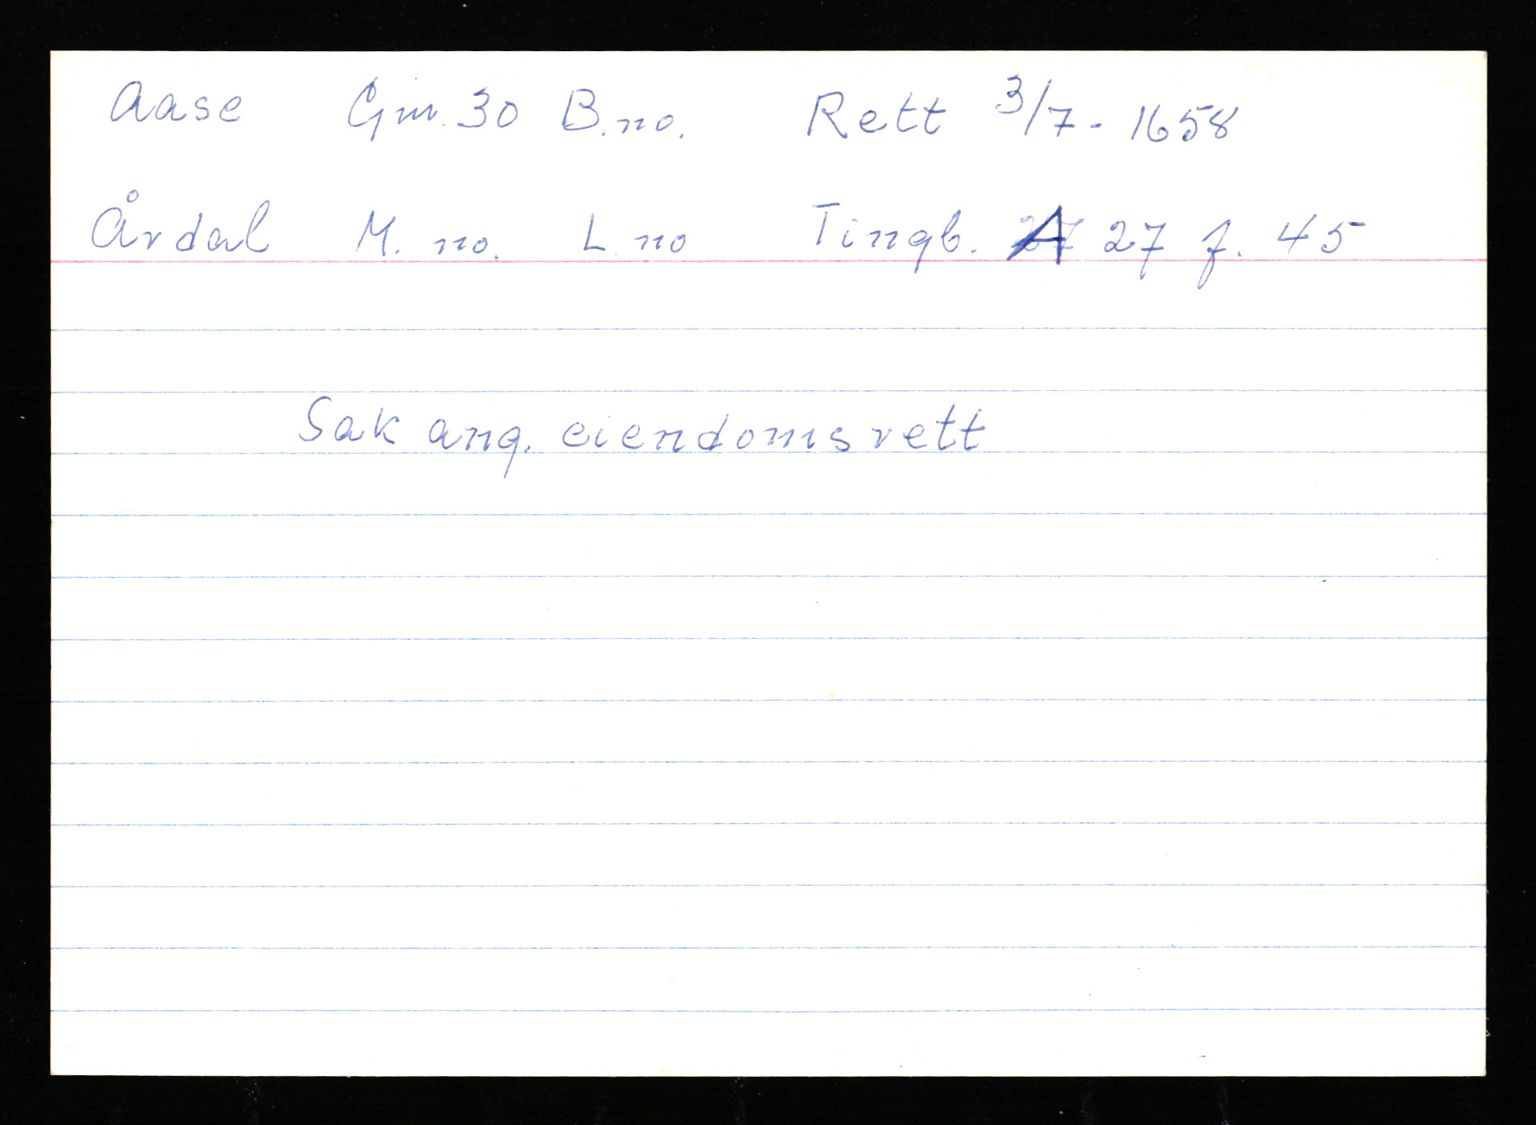 Aase Gnr. 30 B.no. Rett 3/7- 1658
Årdal M. no. L. no Tingb. A 27 f. 45
Sak ang. eiendomsrett